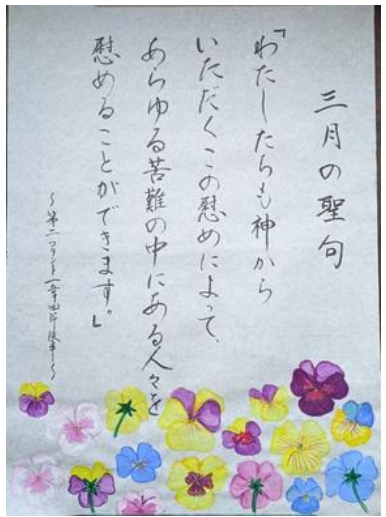 三月の聖句
「わたしたちも神から
いただくこの慰めによって、
あらゆる苦難の中にある人々を
慰めることができます。」
〜第二コリント一章四節後半〜